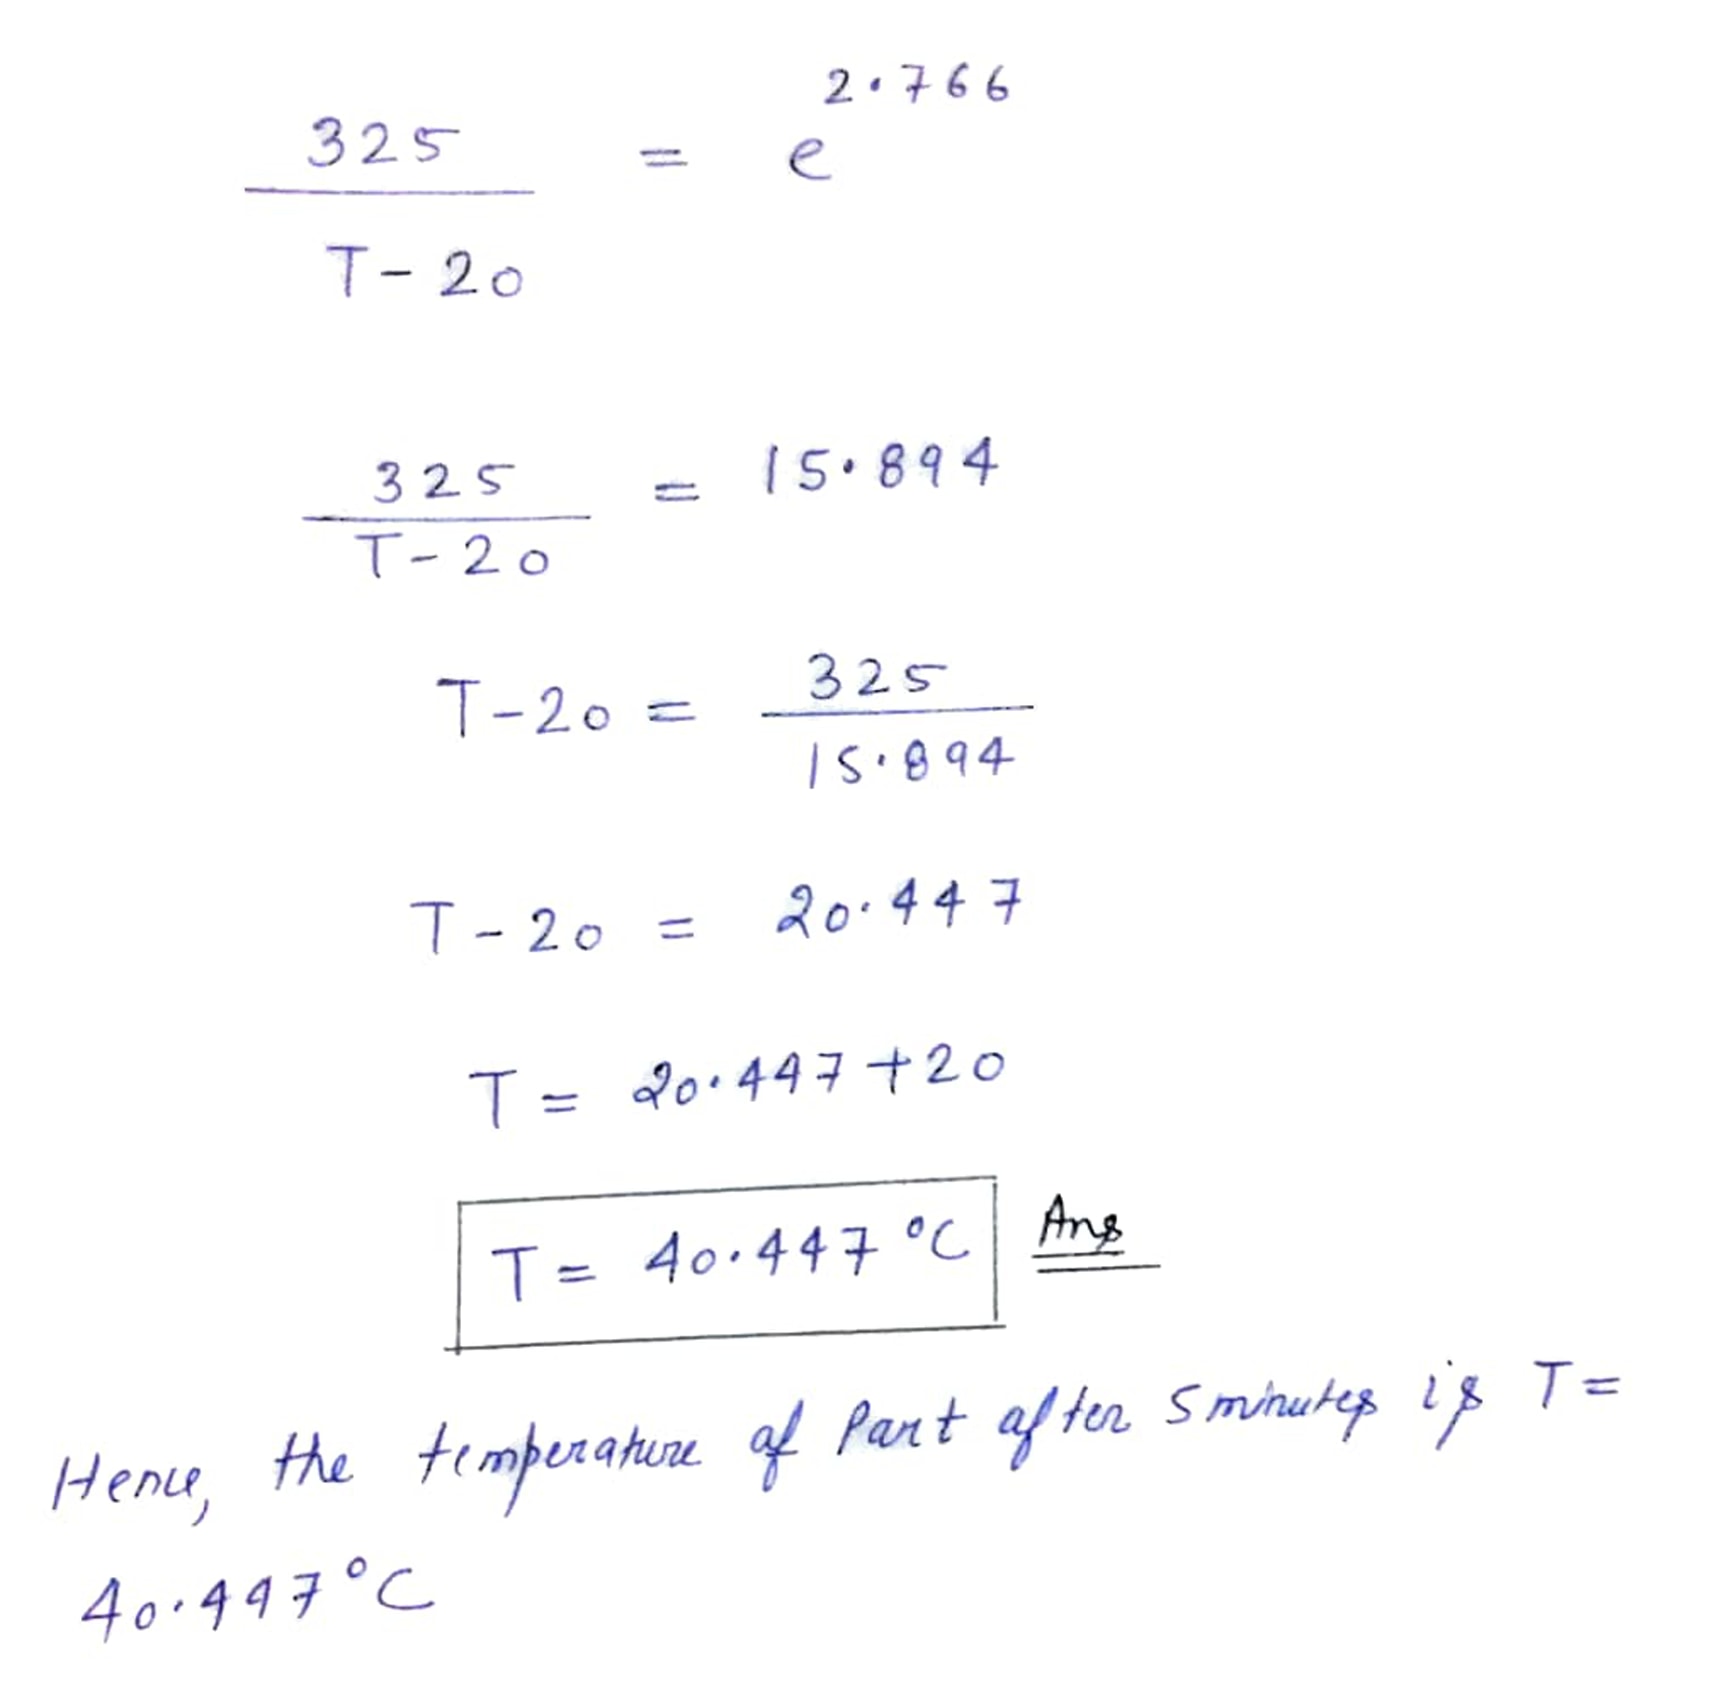 325 / T - 20 = e^2.766
325 / T - 20 = 15.894
T - 20 = 325 / 15.894
T - 20 = 20.447
T = 20.447 + 20
T = 40.447 °C Ans
Hence, the temperature of Part after 5 minutes is T =
40.447 °C